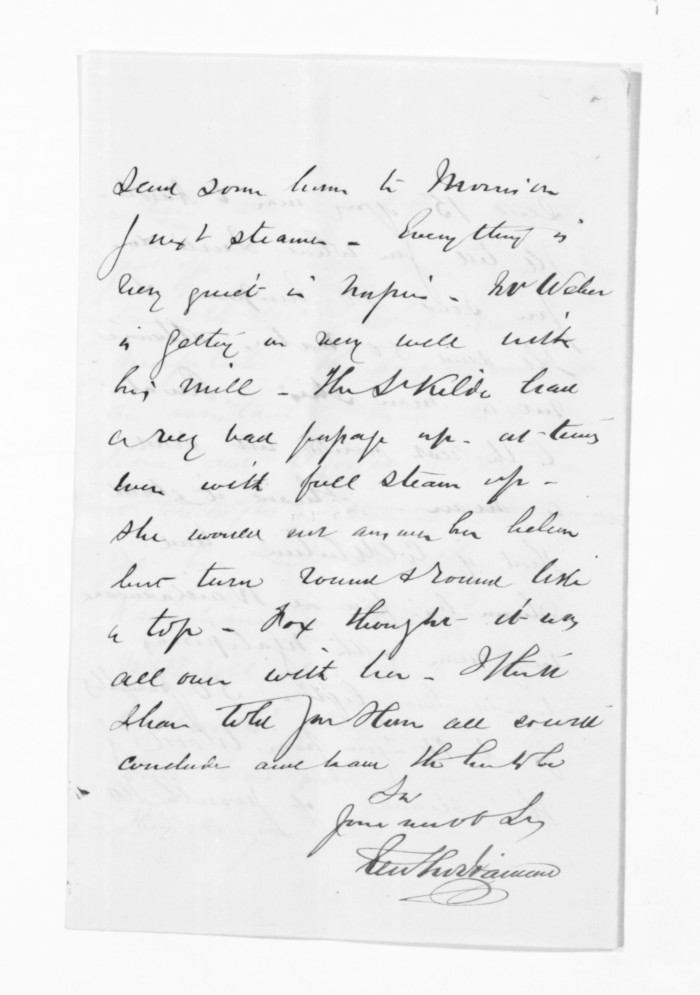 send some home to Morrison
p next steamer - Everything is
very quiet in Napier - Mr Weber
is getting on very well with
his mill - The St Kilda had
a very bad passage up - at times
even with full steam up -
she would not answer her helm
but turn round & round like
a top - Fox thought it was
all over with her - I think
I have told you them all so will
conclude and have the honor to be
Sir
Your most ob Sr